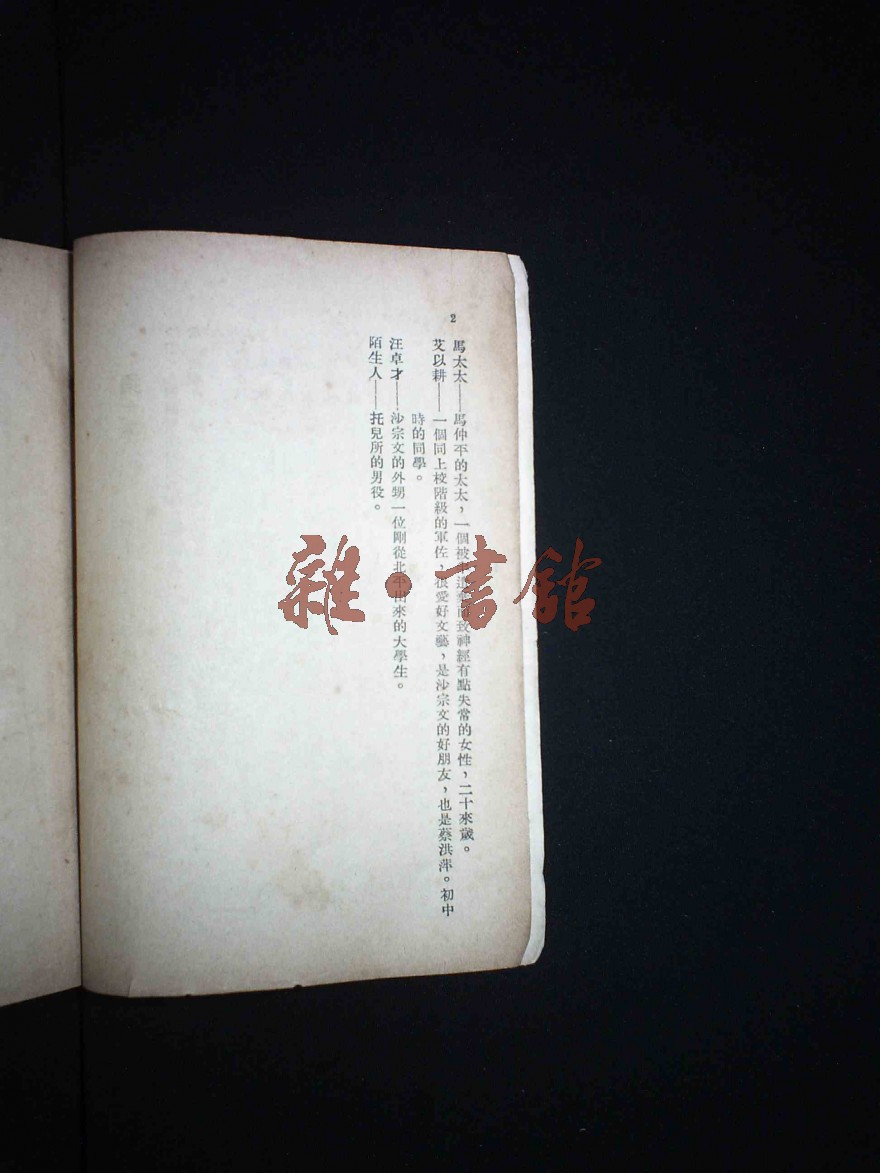 2
馬太太——馬仲平的太太，一個被而致神經有點失常的女性，二十來歲。
艾以耕——一個同上校階級的軍佐，很愛好文藝，是沙宗文的好朋友，也是蔡洪萍。初中
時的同學。
汪卓才——沙宗文的外甥一位剛從北平出來的大學生。
陌生人——托兒所的男役。
雜·書館